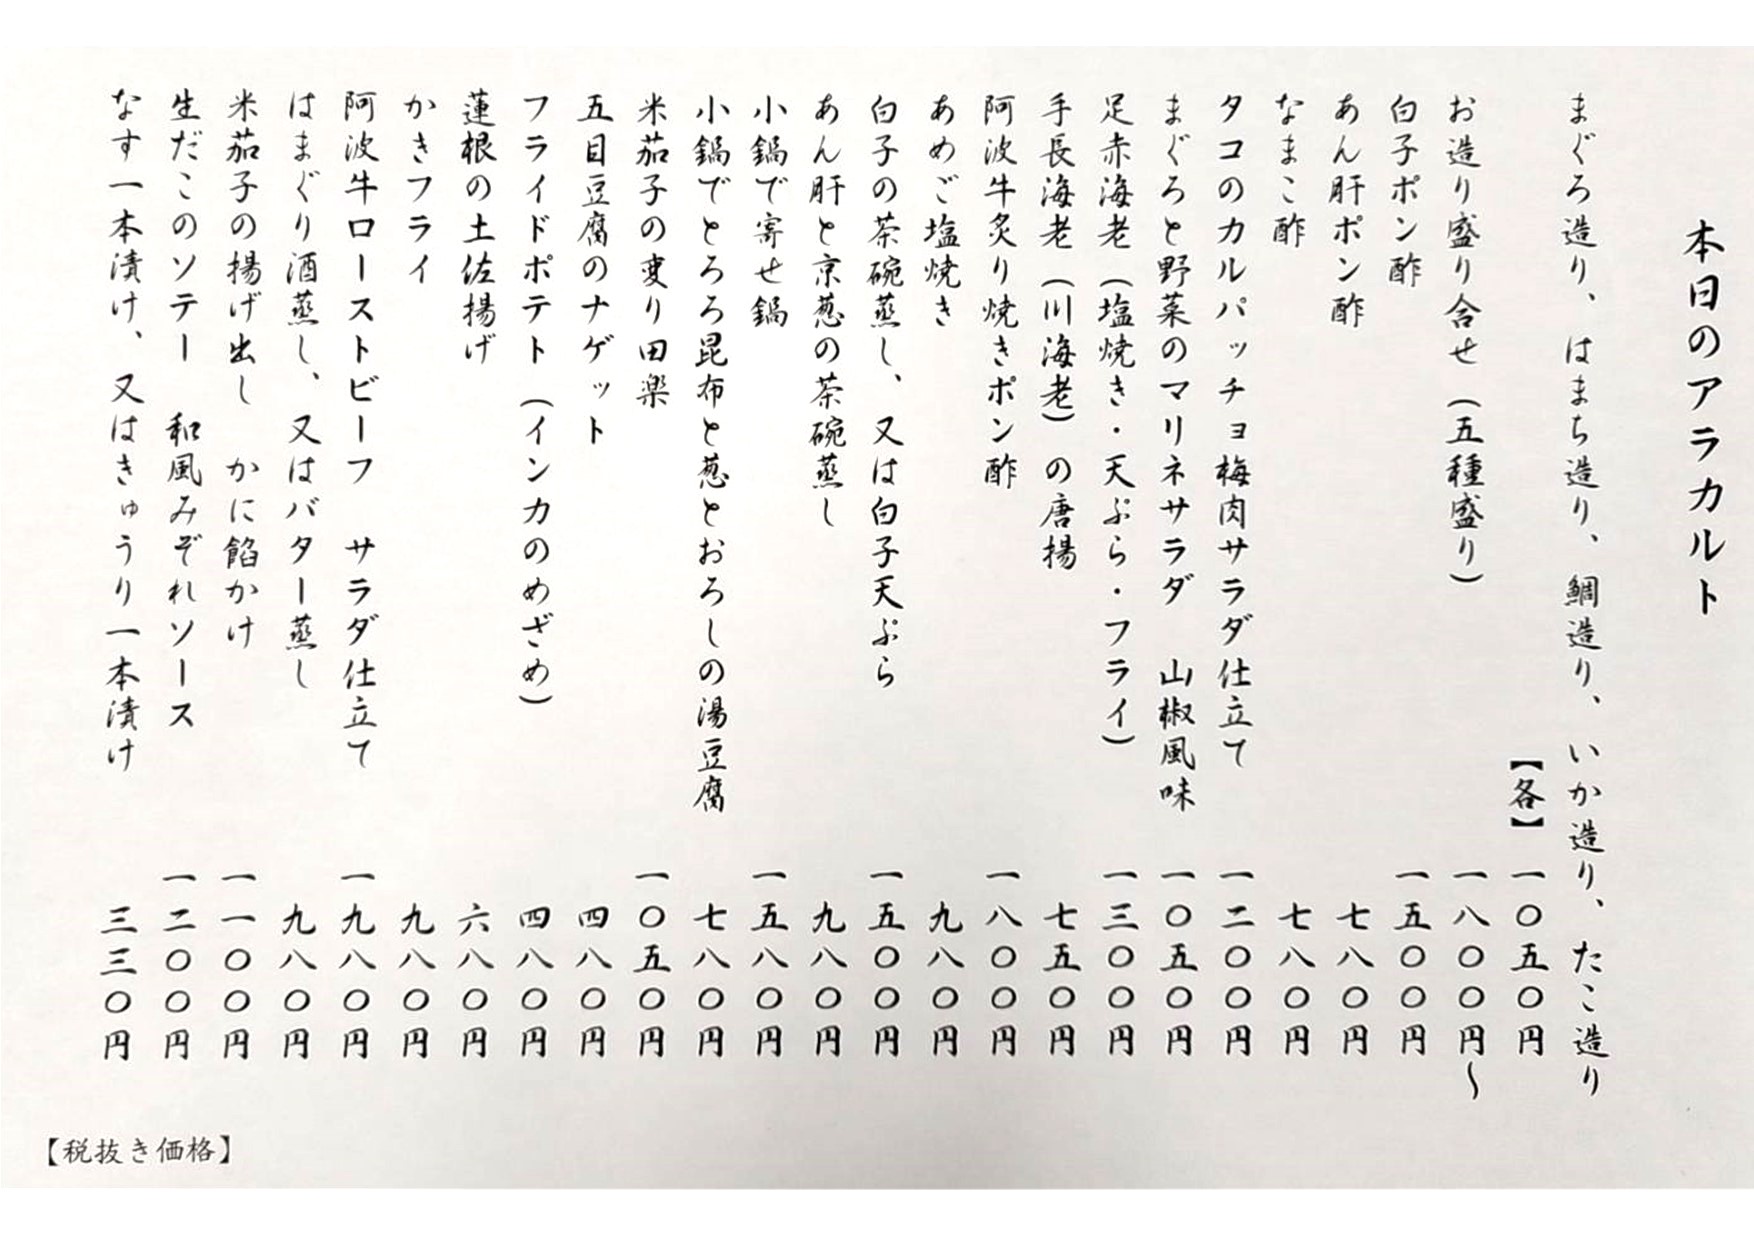 本日のアラカルト
まぐろ造り、はまち造り、鯛造り、いか造り、たこ造り
【各】一〇五〇円
お造り盛り合せ（五種盛り）一八〇〇円～
白子ポン酢 一五〇〇円
あん肝ポン酢 七八〇円
なまこ酢 七八〇円
タコのカルパッチョ梅肉サラダ仕立て 一二〇〇円
まぐろと野菜のマリネサラダ 山椒風味 一〇五〇円
足赤海老（塩焼き・天ぷら・フライ）一三〇〇円
手長海老（川海老）の唐揚 七五〇円
阿波牛炙り焼きポン酢 一八〇〇円
あめご塩焼き 九八〇円
白子の茶碗蒸し、又は白子天ぷら 一五〇〇円
あん肝と京葱の茶碗蒸し 九八〇円
小鍋で寄せ鍋 一五八〇円
小鍋でとろろ昆布と葱とおろしの湯豆腐 七八〇円
米茄子の変り田楽 一〇五〇円
五目豆腐のナゲット 四八〇円
フライドポテト（インカのめざめ）四八〇円
蓮根の土佐揚げ 六八〇円
かきフライ 九八〇円
阿波牛ローストビーフ サラダ仕立て 一九八〇円
はまぐり酒蒸し、又はバター蒸し 九八〇円
米茄子の揚げ出し かに餡かけ 一一〇〇円
生だこのソテー 和風みぞれソース 一二〇〇円
なす一本漬け、又はきゅうり一本漬け 三三〇円
【税抜き価格】